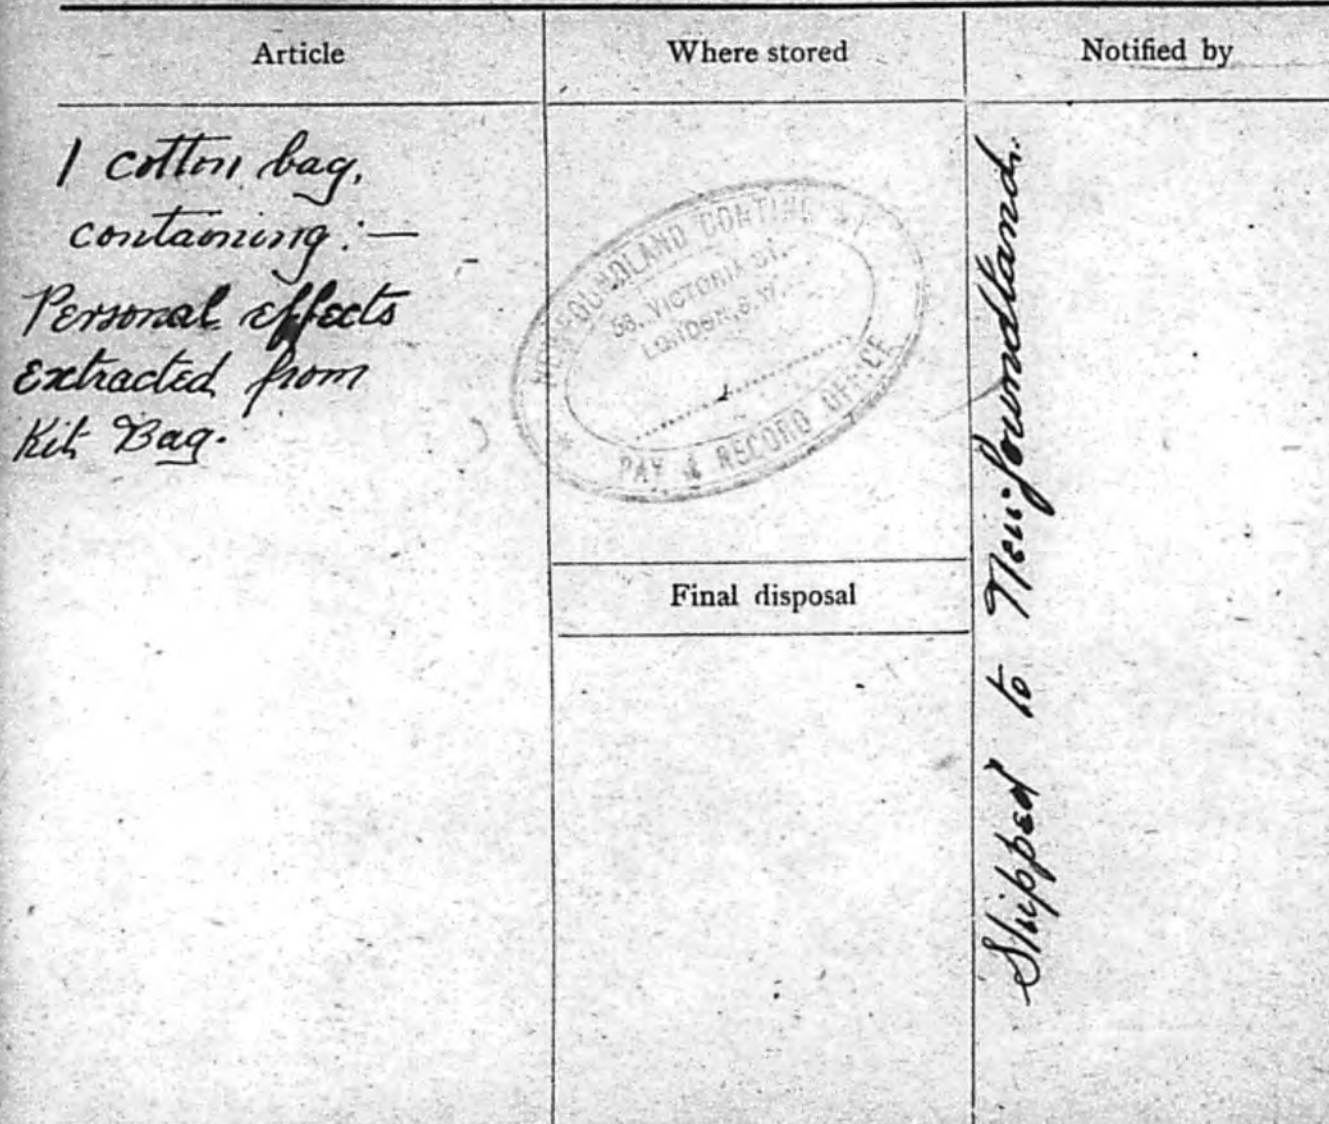 Article
Where stored
Notified by
1 cotton bag,
containing :—
Personal effects
extracted from
Kit Bag.
NEWFOUNDLAND CONTINGENT
58, VICTORIA ST.
LONDON, S.W.
PAY & RECORD OFFICE
Final disposal
Shipped to Newfoundland.